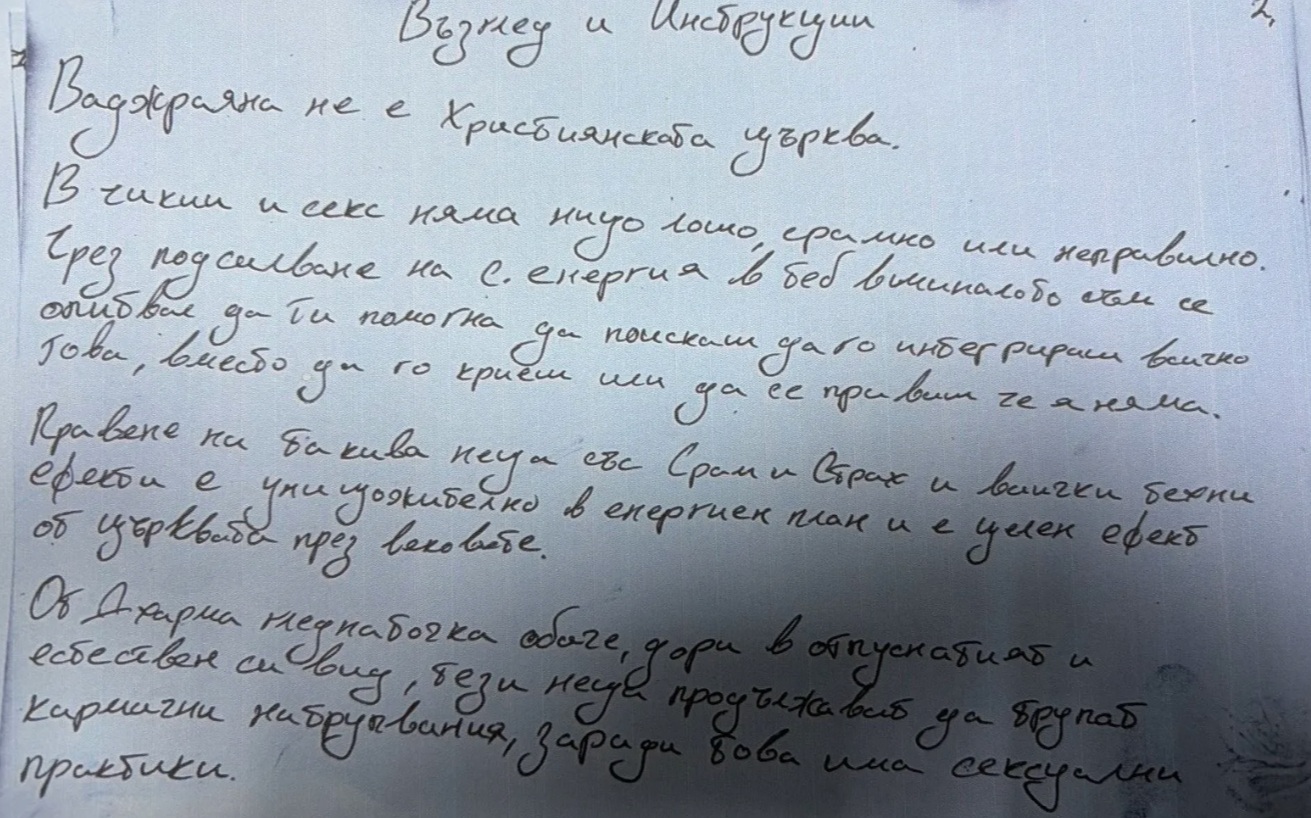 Възглед и Инструкции
2.
Ваджраяна не е Християнската църква.
В чикии и секс няма нищо лошо, срамно или неправилно.
Чрез подсилване на с. енергия в теб в миналото съм се
опитвал да ти помогна да поискаш да го интегрираш всичко
това, вместо да го криеш или да се правиш че я няма.
Правене на такива неща със Срам и Страх и всички техни
ефекти е унищожително в енергиен план и е целен ефект
от църквата през вековете.
От Дхарма гледна точка обаче, дори в отпуснатият и
естествен си вид, тези неща продължават да трупат
кармични натрупвания, заради това има сексуални
практики.